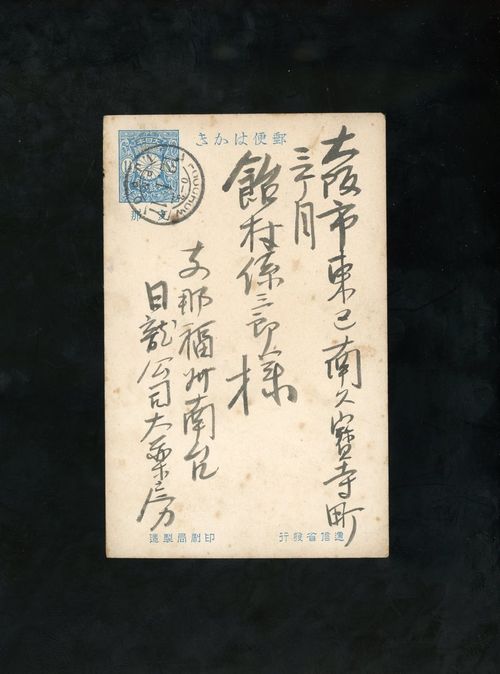 郵便はかき
大阪市東区南久寶寺町
三丁目
飴村係三郎様
支那福州南台
日龍公司大薬房
支那
FOOCHOW
遞信省發行
印刷局製造